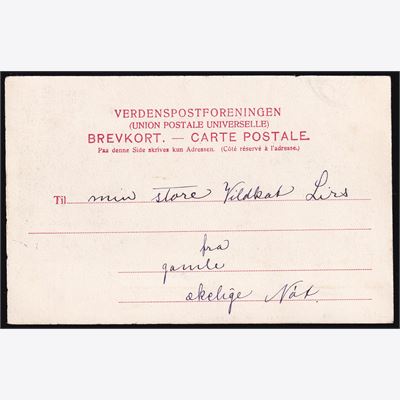 VERDENSPOSTFORENINGEN
(UNION POSTALE UNIVERSELLE)
BREVKORT. — CARTE POSTALE.
Paa denne Side skrives kun Adressen. (Côté réservé à l'adresse.)
Til min store Vildkat Lirs
fra
gamle
ækelige Nót.